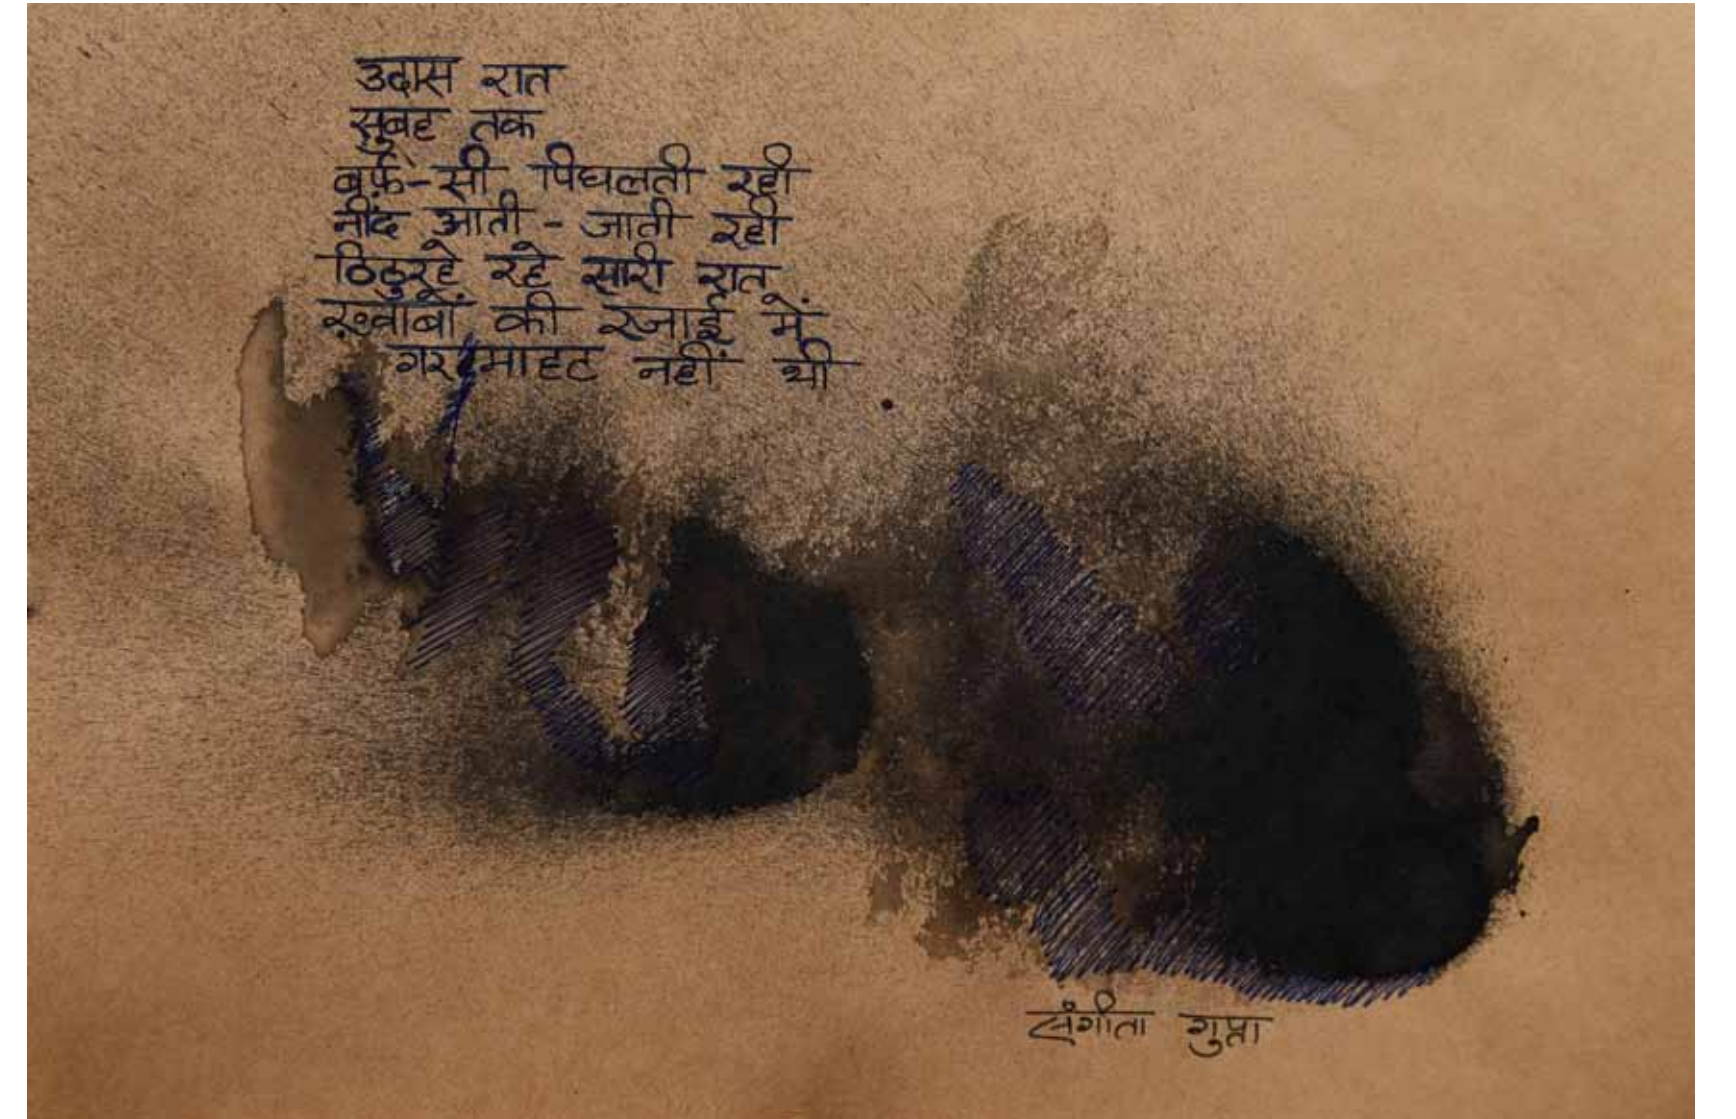 उदास रात
सुबह तक
बर्फ़-सी पिघलती रही
नींद आती - जाती रही
ठिठुरहे रहे सारी रात
ख़्वाबों की रजाई में
गरमाहट नहीं थी
संगीता गुप्ता